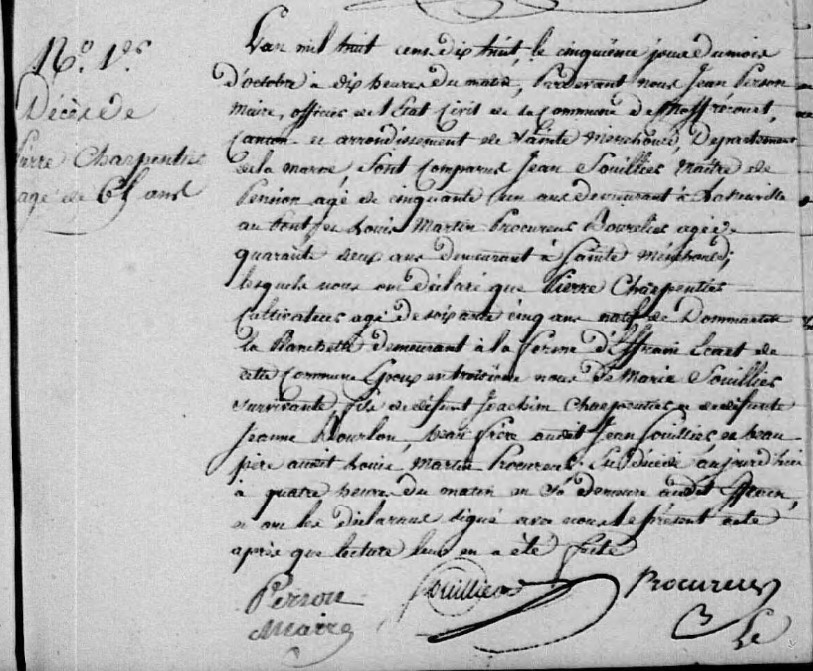 N.º 1.er
Décès de
Pierre Charpentier
agé de 65 ans
L'an mil huit cens dix huit, le cinquième jour du mois
d'octobre à dix heures du matin, Pardevant nous Jean Person
Maire, officier de l'Etat Civil de la Commune de Maffrecourt,
Canton et arrondissement de Sainte Menehould, Departement
de la marne Sont Comparus Jean Souillier Maitre de
Pension agé de cinquante un ans demeurant à Laneuville
au Pont et Louis Martin Procureur Bourelier agé de
quarante deux ans demeurant à Sainte Ménéhould;
lesquels nous ont déclaré que Pierre Charpentier
Cultivateur agé de soixante cinq ans natif de Dommartin
la Planchette demeurant à la ferme d' Ecart de
cette Commune Epoux en troisième nôces de Marie Souillier
survivante, fils de défunt Joachim Charpentier et de défunte
Jeanne Bourlon, beau frère audit Jean Souillier, et beau
père audit Louis Martin Procureur; Est décédé aujourd'hui
à quatre heures du matin en sa demeure audit
et ont les déclarans signé avec nous le présent acte
après que lecture leur en a été faite
Person
Maire
Souillier
Procureur
Le